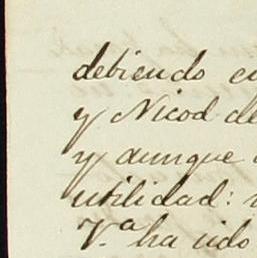 debiendo
y Nicod de
y aunque
utilidad:
V.ª ha ido